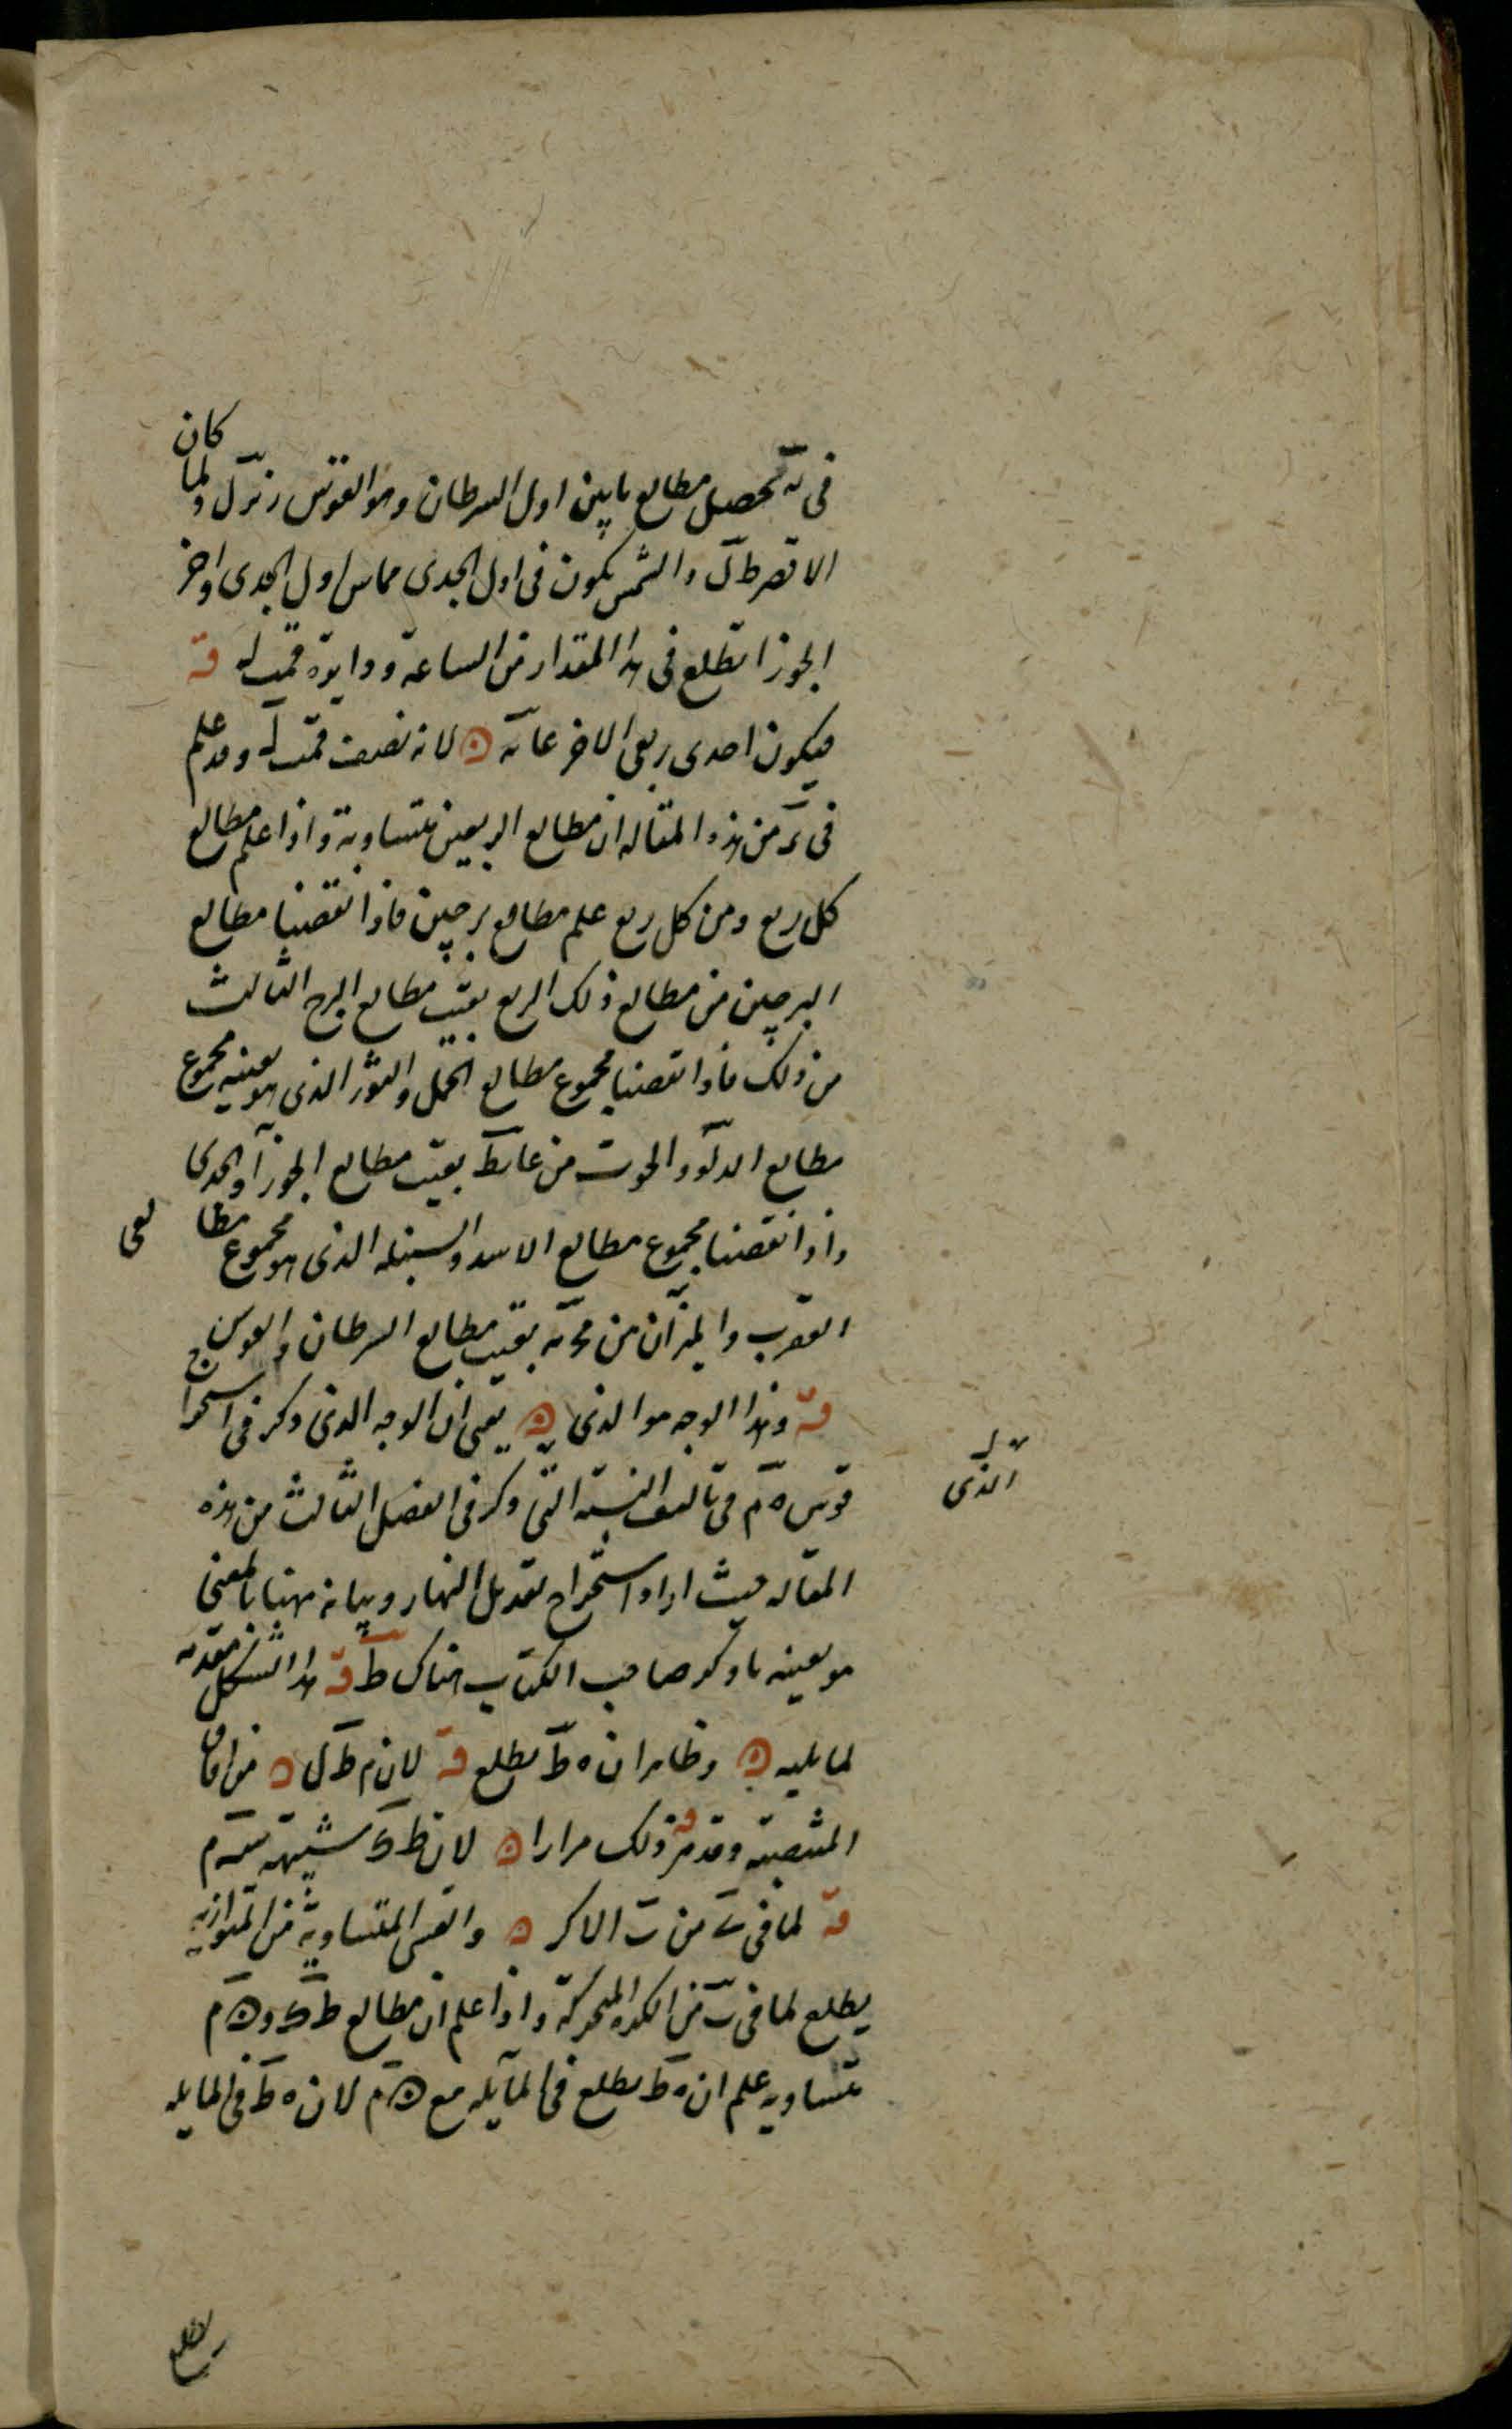 كان
فى ىه تحصل مطالع مابين اول السرطان وهو القوس ولما
الاقصر ط ل والشمس يكون فى اول الجدى مماس اول الجدى واخر
الجوزا تطلع فى هذا المقدار من الساعة ودايرة
فيكون احدى ربعى الاخر عا ىه ه لانه نصف وقد علم
فى من هذه المقاله ان مطالع الربعين متساوية واذا علم مطالع
كل ربع ومن كل ربع علم مطالع برجين فاذا نقصنا مطالع
البرجين من مطالع ذلك الربع بقيت مطالع البرج الثالث
من ذلك فاذا نقصنا مجموع مطالع الحمل والثور الذى هو بعينه مجموع
مطالع الدلو والحوت من عا يط بقيت مطالع الجوزآ والجدى
واذا نقصنا مجموع مطالع الاسد والسنبله الذى هو مجموع مطا لعى
العقرب والميزان من بقيت مطالع السرطان والقوس
قه وهذا الوجه هو الذى ه يعنى ان الوجه الذى ذكر فى استخراج
قوس ه م فى تاليف النسبة التى ذكر فى الفصل الثالث من هذه
الذى
المقاله حيث اراد استخراج تعديل النهار وبيانه ههنا بالمعنى
هو بعينه ما ذكر صاحب الكتاب هناك ط قه هذا الشكل مقدمه
لما يليه ه وظاهر ان ه ط يطلع قه لان م ط ل ه من افاق
المنتصبة وقد مر ذلك مرارا ه لان ط ك شبيهة م
قه لما فى من ب الاكر ه والقسى المتساوية من المتوازيه
يطلع لما فى ب من الكره المتحركة واذا علم ان مطالع ط ك و ه م
متساويه علم ان ه ط يطلع فى المآيله مع ه م لان ه ط فى المايله